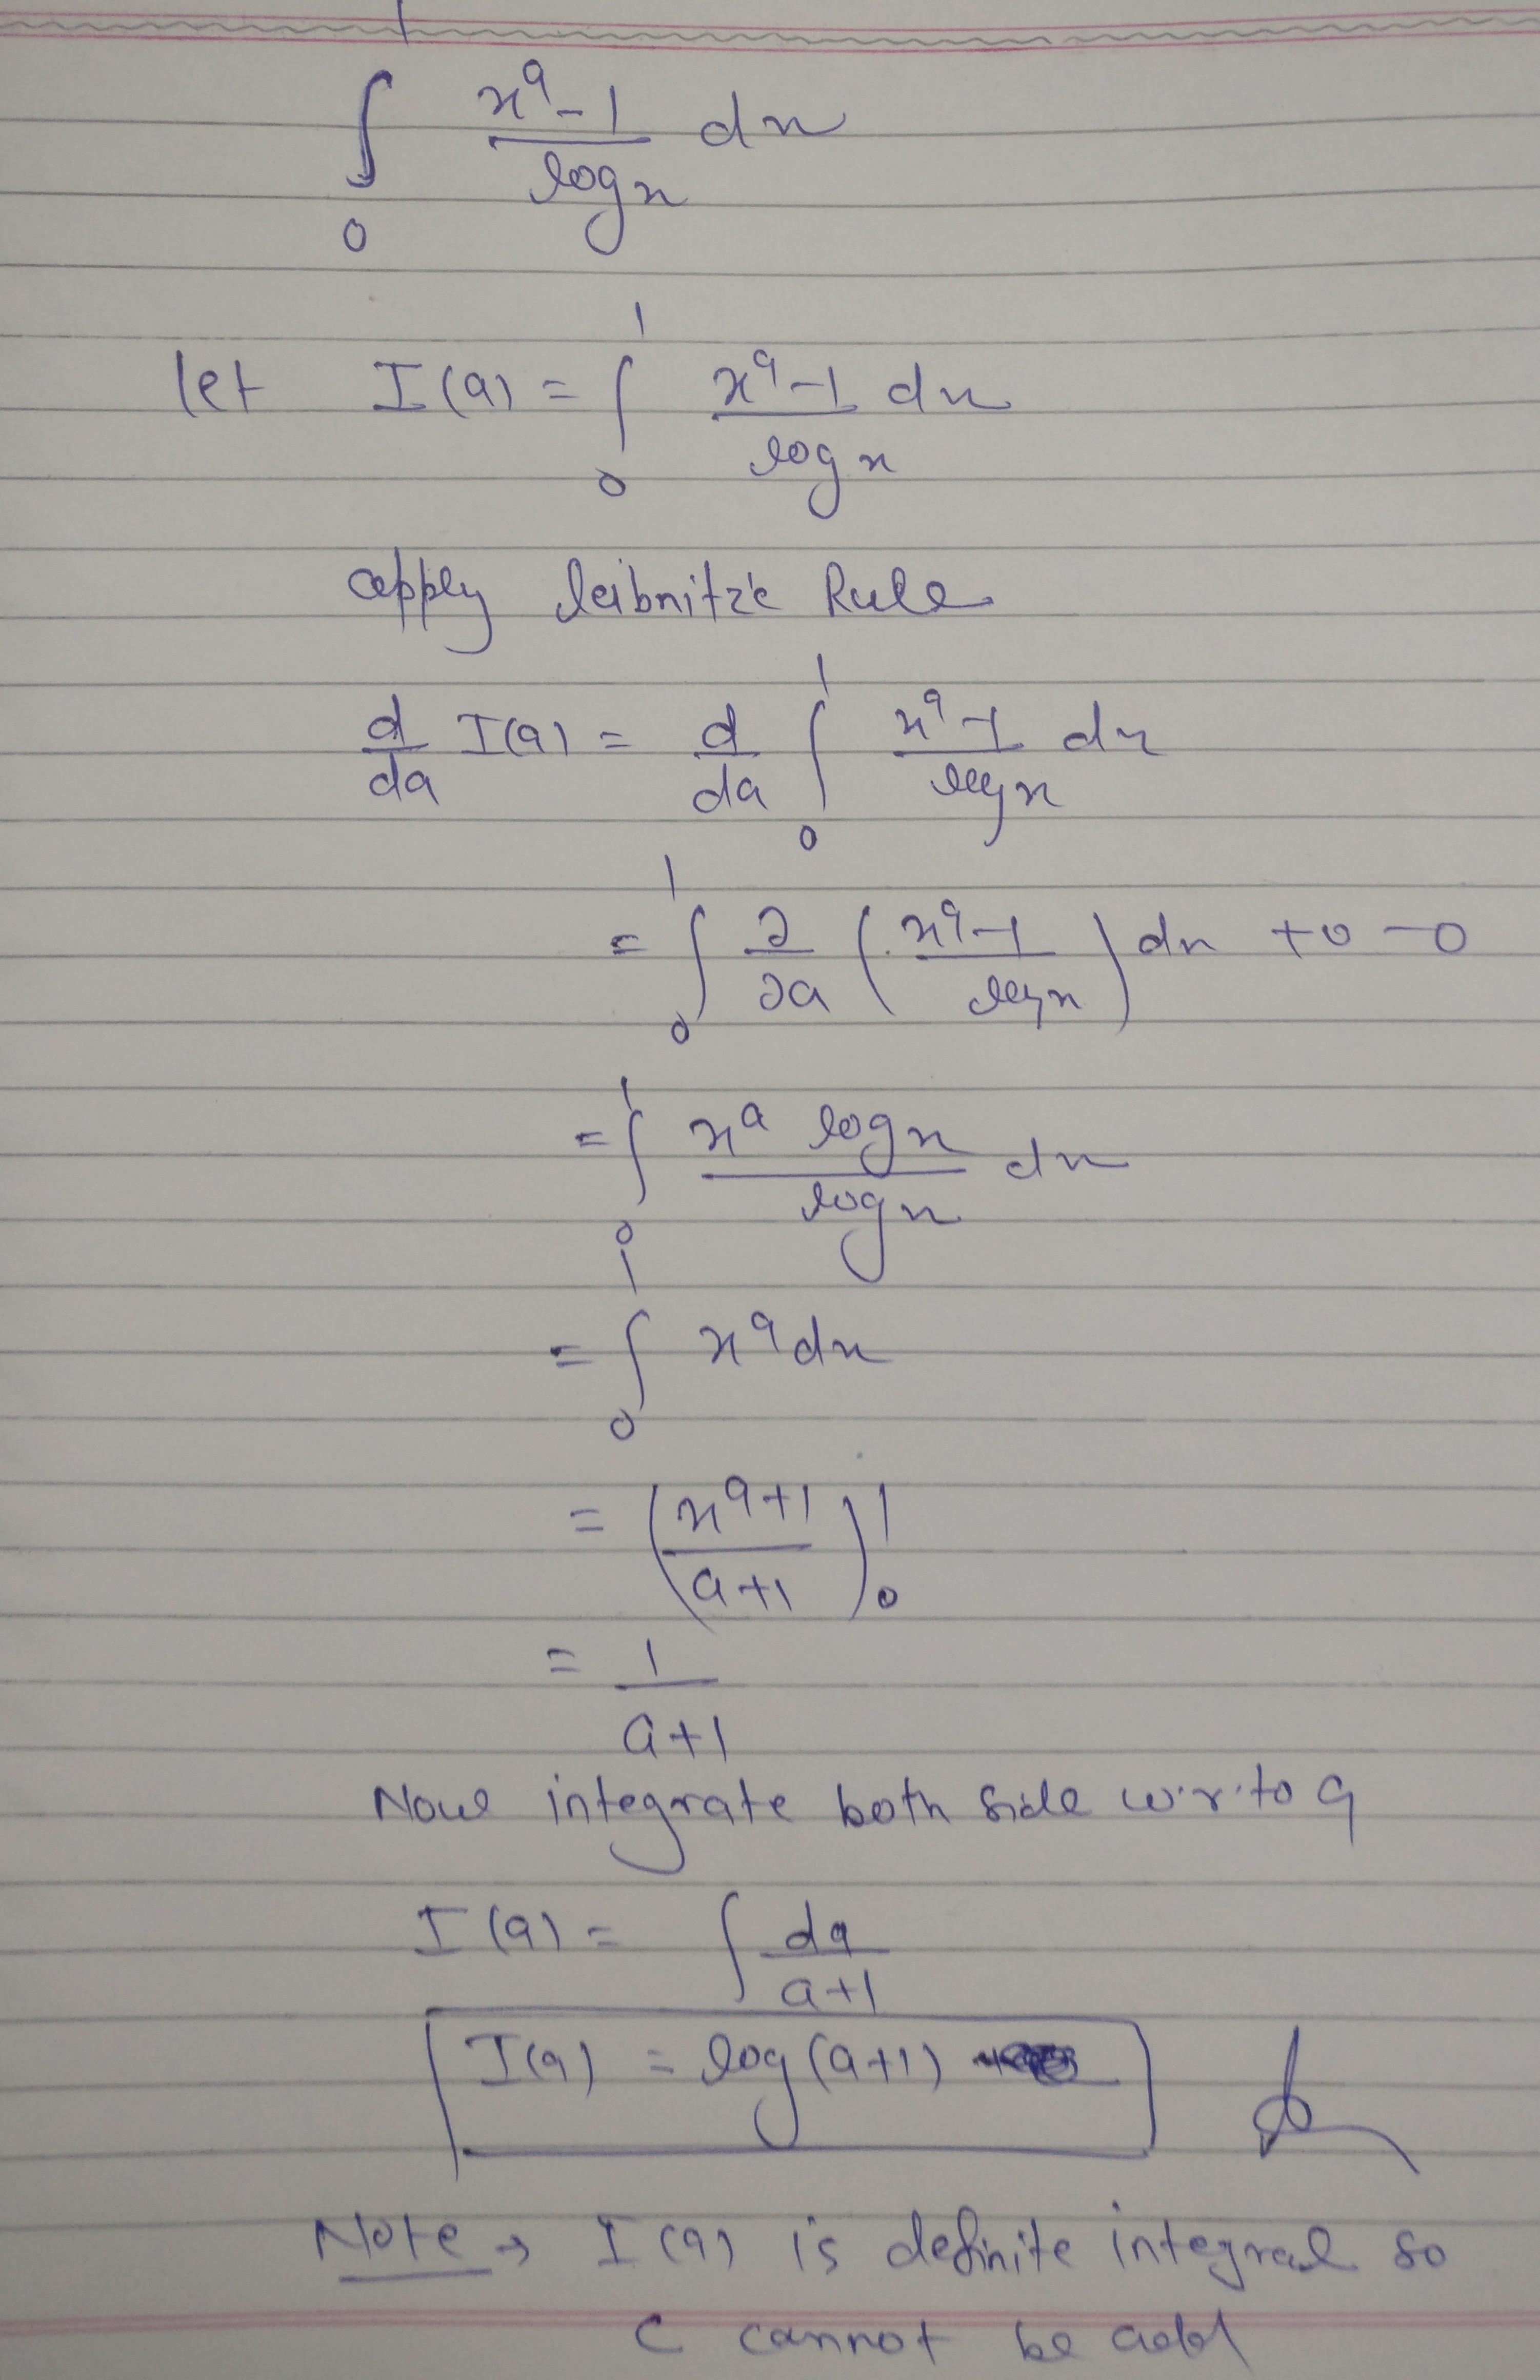 1
∫ x^a - 1 / log x dx
0
let I(a) = ∫_0^1 x^a - 1 / log x dx
apply leibnitz's Rule
d/da I(a) = d/da ∫_0^1 x^a - 1 / log x dx
= ∫_0^1 ∂/∂a ( x^a - 1 / log x ) dx + 0 - 0
= ∫_0^1 x^a log x / log x dx
= ∫_0^1 x^a dx
= ( x^a+1 / a+1 )_0^1
= 1 / a+1
Now integrate both side w.r.to a
I(a) = ∫ da / a+1
I(a) = log(a+1)
Note → I(a) is definite integral so
C cannot be add